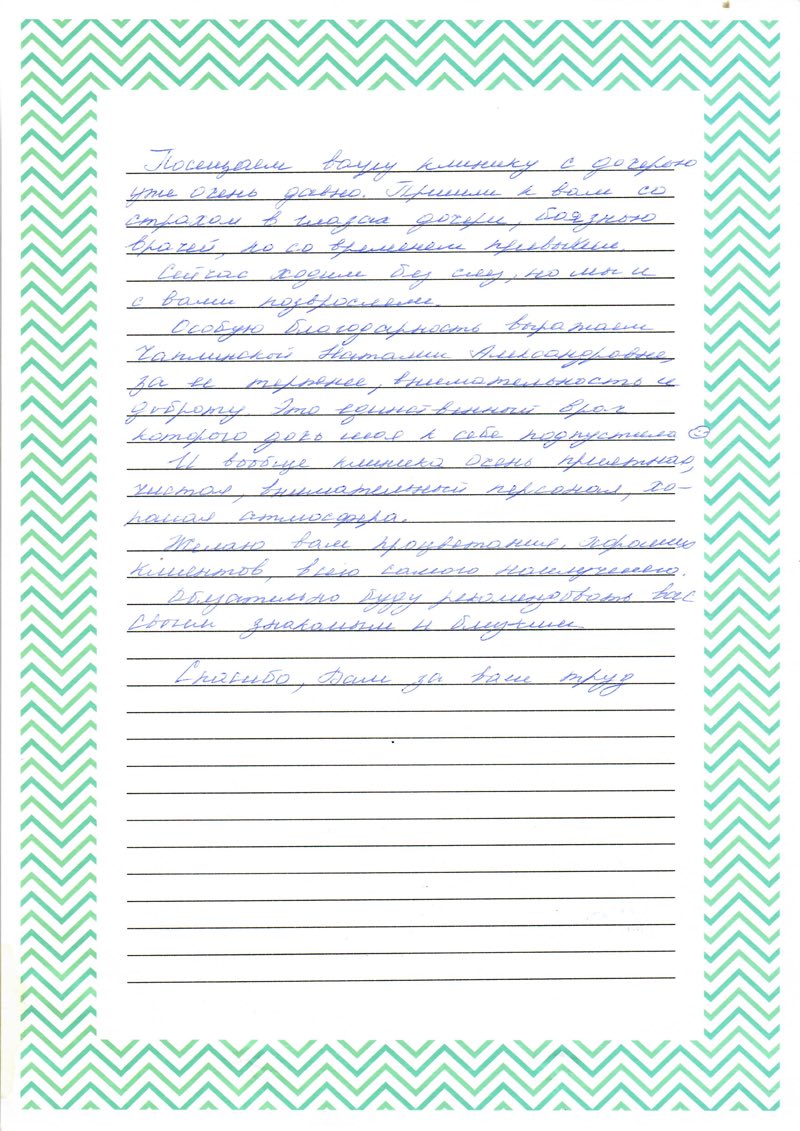 Посещаем вашу клинику с дочерью
уже очень давно. Пришли к вам со
страхом в глазах дочери, боязнью
врачей, но со временем привыкли.
Сейчас ходим без слез, но мы и
с вами повзрослели.
Особую благодарность выражаем
Чаплинской Наталии Александровне,
за ее терпение, внимательность и
доброту. Это единственный врач
которого дочь моя к себе подпустила
И вообще клиника очень приятная,
чистая, внимательный персонал, хо-
рошая атмосфера.
Желаю вам процветания, хороших
клиентов, всего самого наилучшего.
Обязательно буду рекомендовать вас
своим знакомым и близким.
Спасибо, Вам за ваш труд